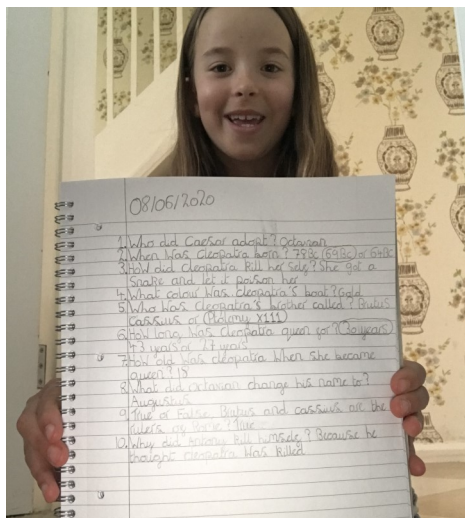 08/06/2020
1. Who did Caesar adopt? Octavian
2. When was Cleopatra born? 78BC (69BC) or 64BC
3. How did cleopatra kill her self? She got a
snake and let it poison her
4. What colour was cleopatra's boat? Gold
5. Who was cleopatra's brother called? Brutus
Cassius or (Ptolomy X111)
6. How long was cleopatra queen for? (30 years)
43 years or 27 years
7. How old was cleopatra when she became
queen? 18
8. What did octavian change his name to?
Augustus
9. True or False, Brutus and cassius are the
rulers of Rome? True
10. Why did Antony kill himself? Because he
thought cleopatra was killed